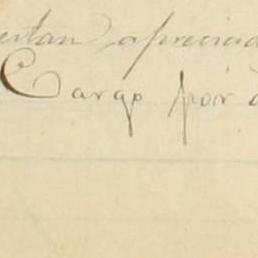 estan apreciad
Cargo por